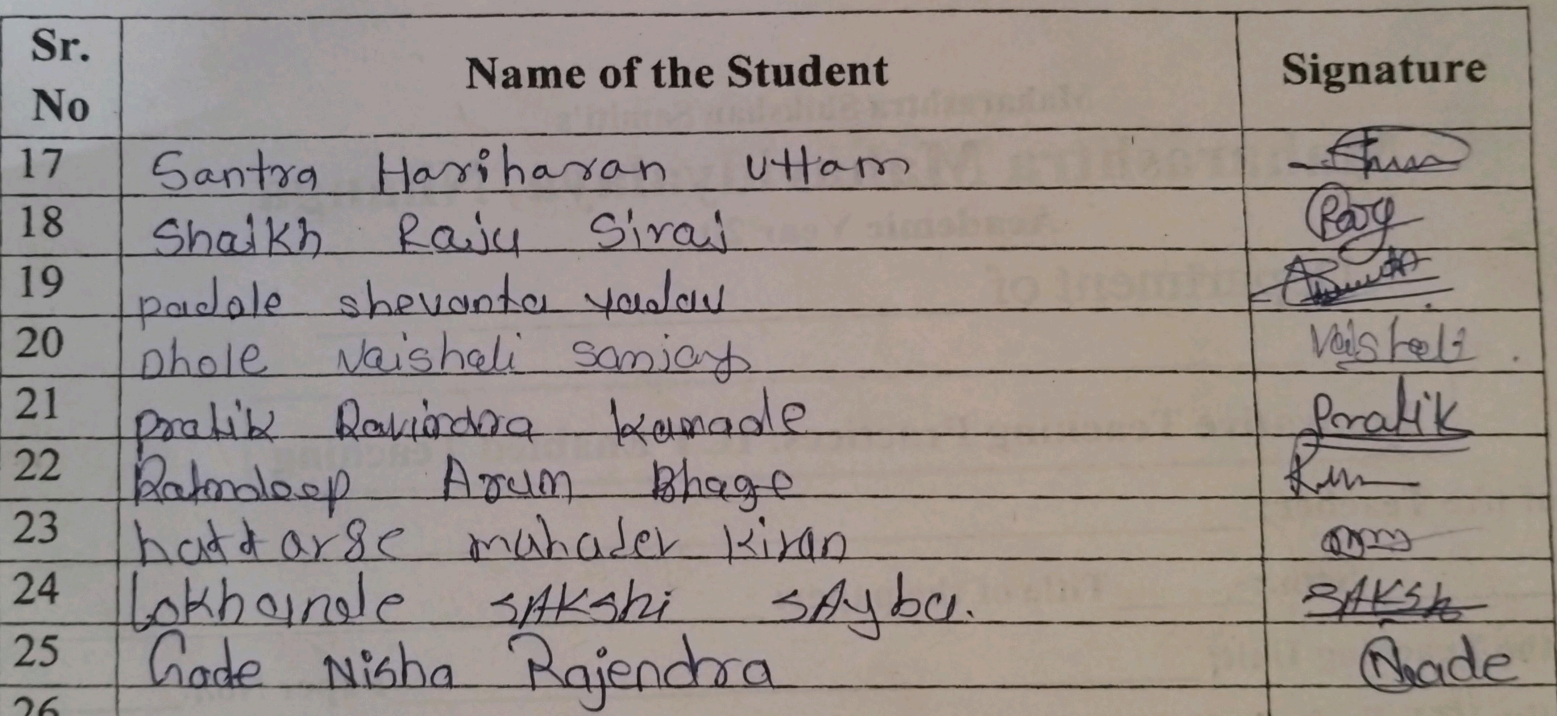 Sr. No Name of the Student Signature
17 Santra Hariharan Uttam
18 Shaikh Raju Siraj Raj
19 padole shevanta yadav
20 Dhole Vaishali Sanjay Vaishali
21 Pratik Ravindra Kamade Pratik
22 Ratndeep Arun Bhage
23 hattarge mahadev kiran
24 Lokhande SAKshi SAyba. SAKSh
25 Gade Nisha Rajendra Ngade
26